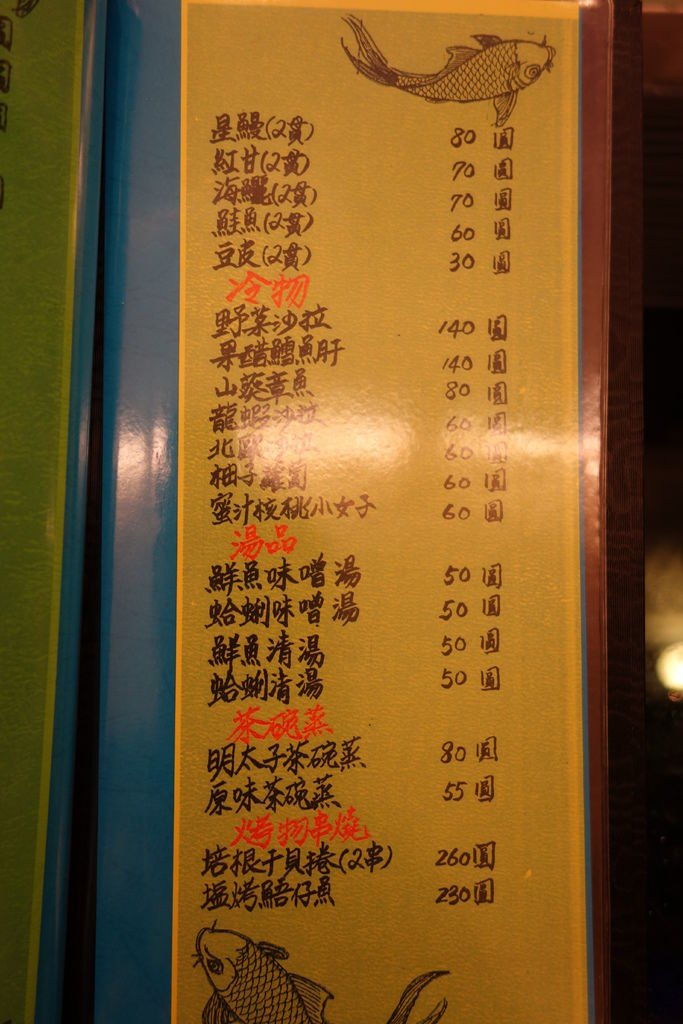 星鰻(2貫) 80 圓
紅甘(2貫) 70 圓
海鱺(2貫) 70 圓
鮭魚(2貫) 60 圓
豆皮(2貫) 30 圓
冷物
野菜沙拉 140 圓
果醋鱈魚肝 140 圓
山葵章魚 80 圓
龍蝦沙拉 60 圓
北歐沙拉 60 圓
柚子蘿蔔 60 圓
蜜汁核桃小女子 60 圓
湯品
鮮魚味噌湯 50 圓
蛤蜊味噌湯 50 圓
鮮魚清湯 50 圓
蛤蜊清湯 50 圓
茶碗蒸
明太子茶碗蒸 80 圓
原味茶碗蒸 55 圓
烤物串燒
培根干貝捲(2串) 260圓
塩烤鯃仔魚 230圓